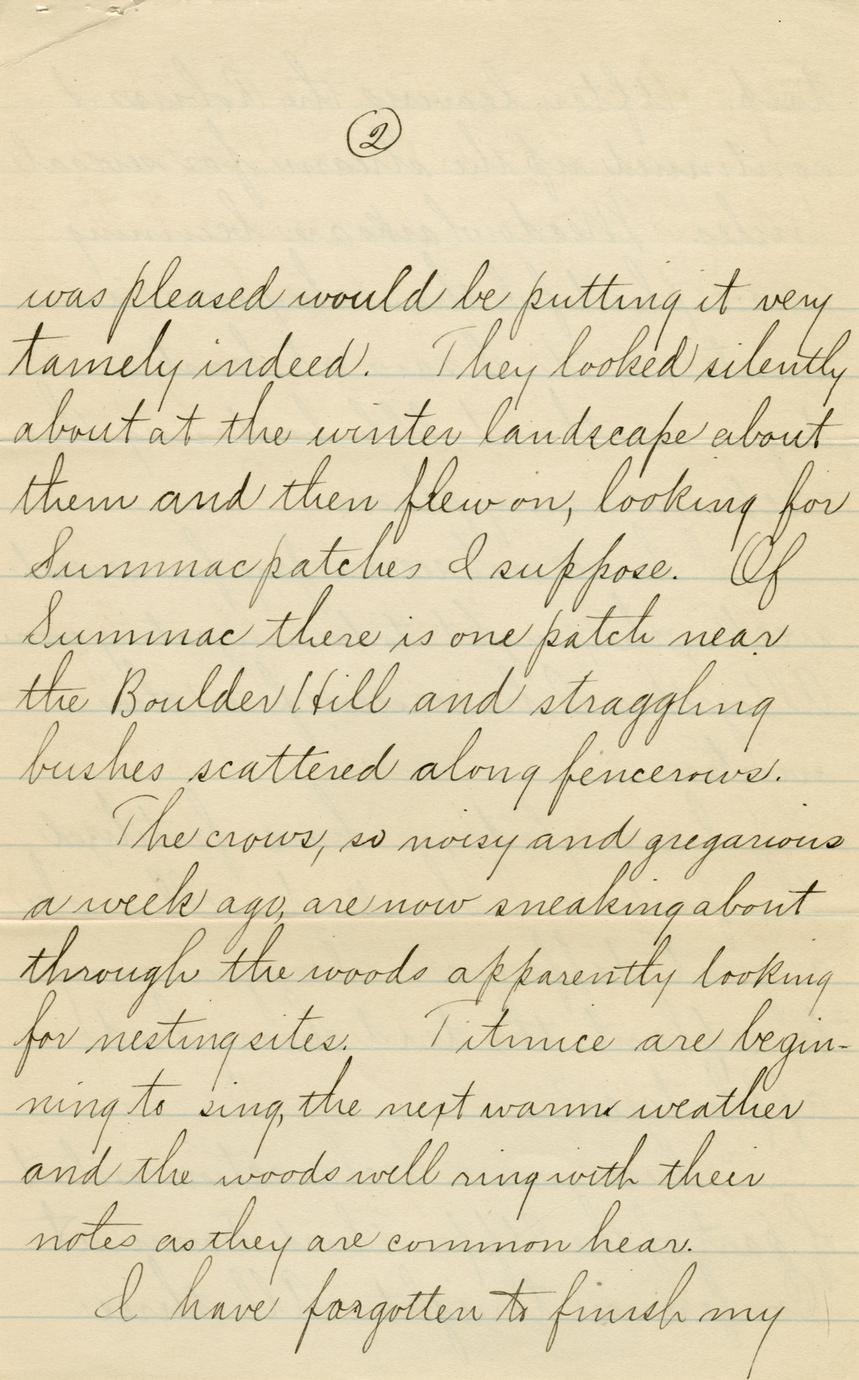 2
was pleased would be putting it very
tamely indeed. They looked silently
about at the winter landscape about
them and then flew on, looking for
Summac patches I suppose. Of
Summac there is one patch near
the Boulder Hill and straggling
bushes scattered along fencerows.
The crows, so noisy and gregarious
a week ago, are now sneaking about
through the woods apparently looking
for nesting sites. Titmice are begin-
ning to sing, the next warm weather
and the woods well ring with their
notes as they are common hear.
I have forgotten to finish my